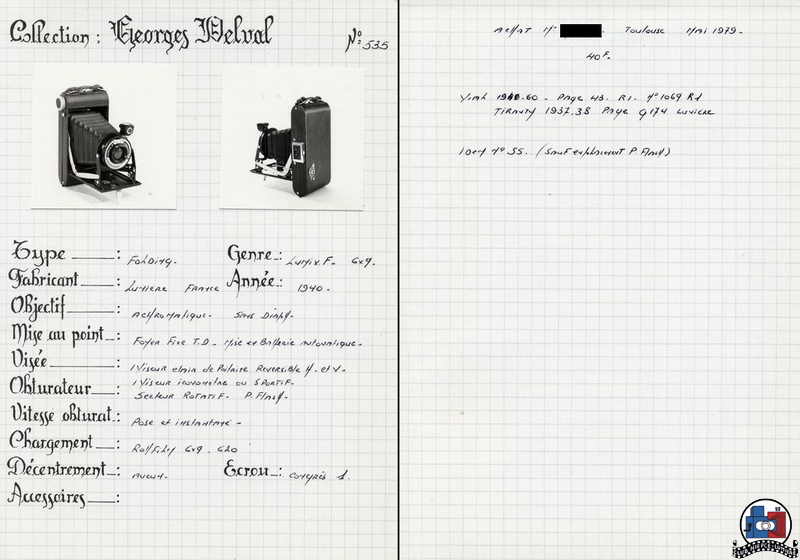 Collection : Georges Delval
N° 535
Type : Folding.
Genre : Lumix. F. 6x9.
Fabricant : Lumiere France
Année : 1940.
Objectif : Achromatique. Sans Diaph.
Mise au point : Foyer Fixe T.D. Mise en Batterie automatique.
Visée : 1 Viseur clair de Redaire Reversible H. et V.
1 Viseur iconometre ou SPORTIF.
Obturateur : Secteur Rotatif. P. Flash.
Vitesse obturat. : Pose et instantané
Chargement : Rollfilm 6x9. 620
Décentrement : aucun.
Ecrou : Congrès 1.
Accessoires :
Achat M. Toulouse Mai 1979.
40F.
Vial 1940.60. Page 43. R1. N° 1069 Rd
Tirauty 1937.38 Page G174 Lumiere
Idem N° 55. (Sauf emplacement P Flash)